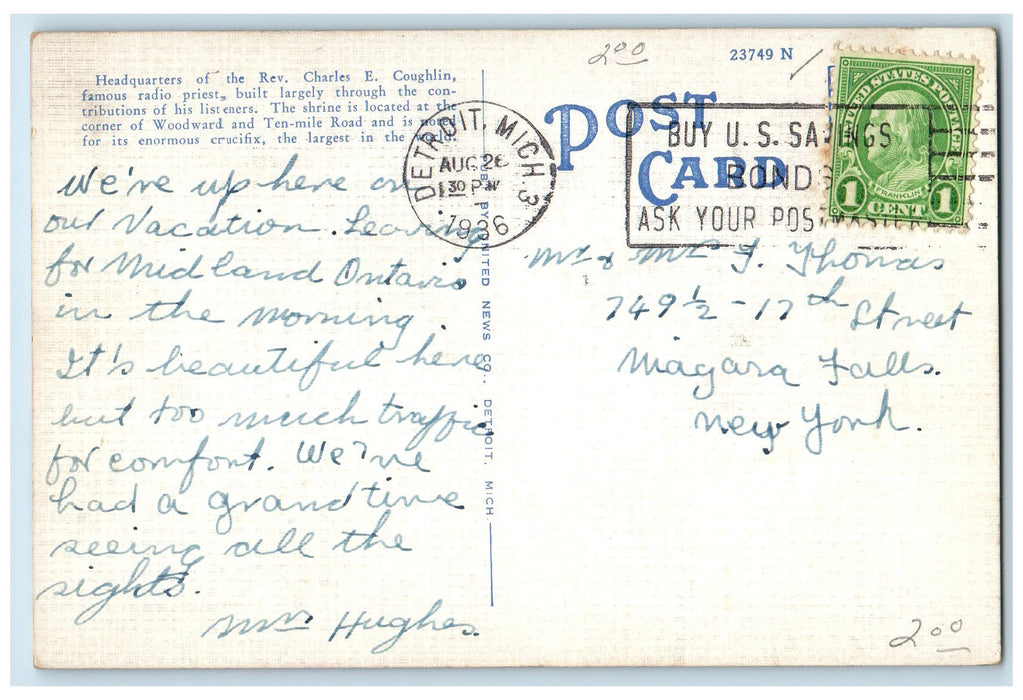 2 00
23749 N
Headquarters of the Rev. Charles E. Coughlin,
famous radio priest, built largely through the con-
tributions of his listeners. The shrine is located at the
corner of Woodward and Ten-mile Road and is noted
for its enormous crucifix, the largest in the world.
POST
CARD
DETROIT, MICH. 3
AUG 26
30 PM
1936
BUY U.S. SAVINGS
BONDS
ASK YOUR POSTMASTER
UNITED STATES POSTAGE
FRANKLIN
1 CENT 1
We're up here on
our Vacation. Leaving
for Midland Ontario
in the morning.
It's beautiful here
but too much traffic
for comfort. We've
had a grand time
seeing all the
sights.
Mrs Hughes.
BY UNITED NEWS CO., DETROIT, MICH.
Mr & Mrs F. Thomas
749 1/2 - 17th Street
Niagara Falls.
New York.
2 00